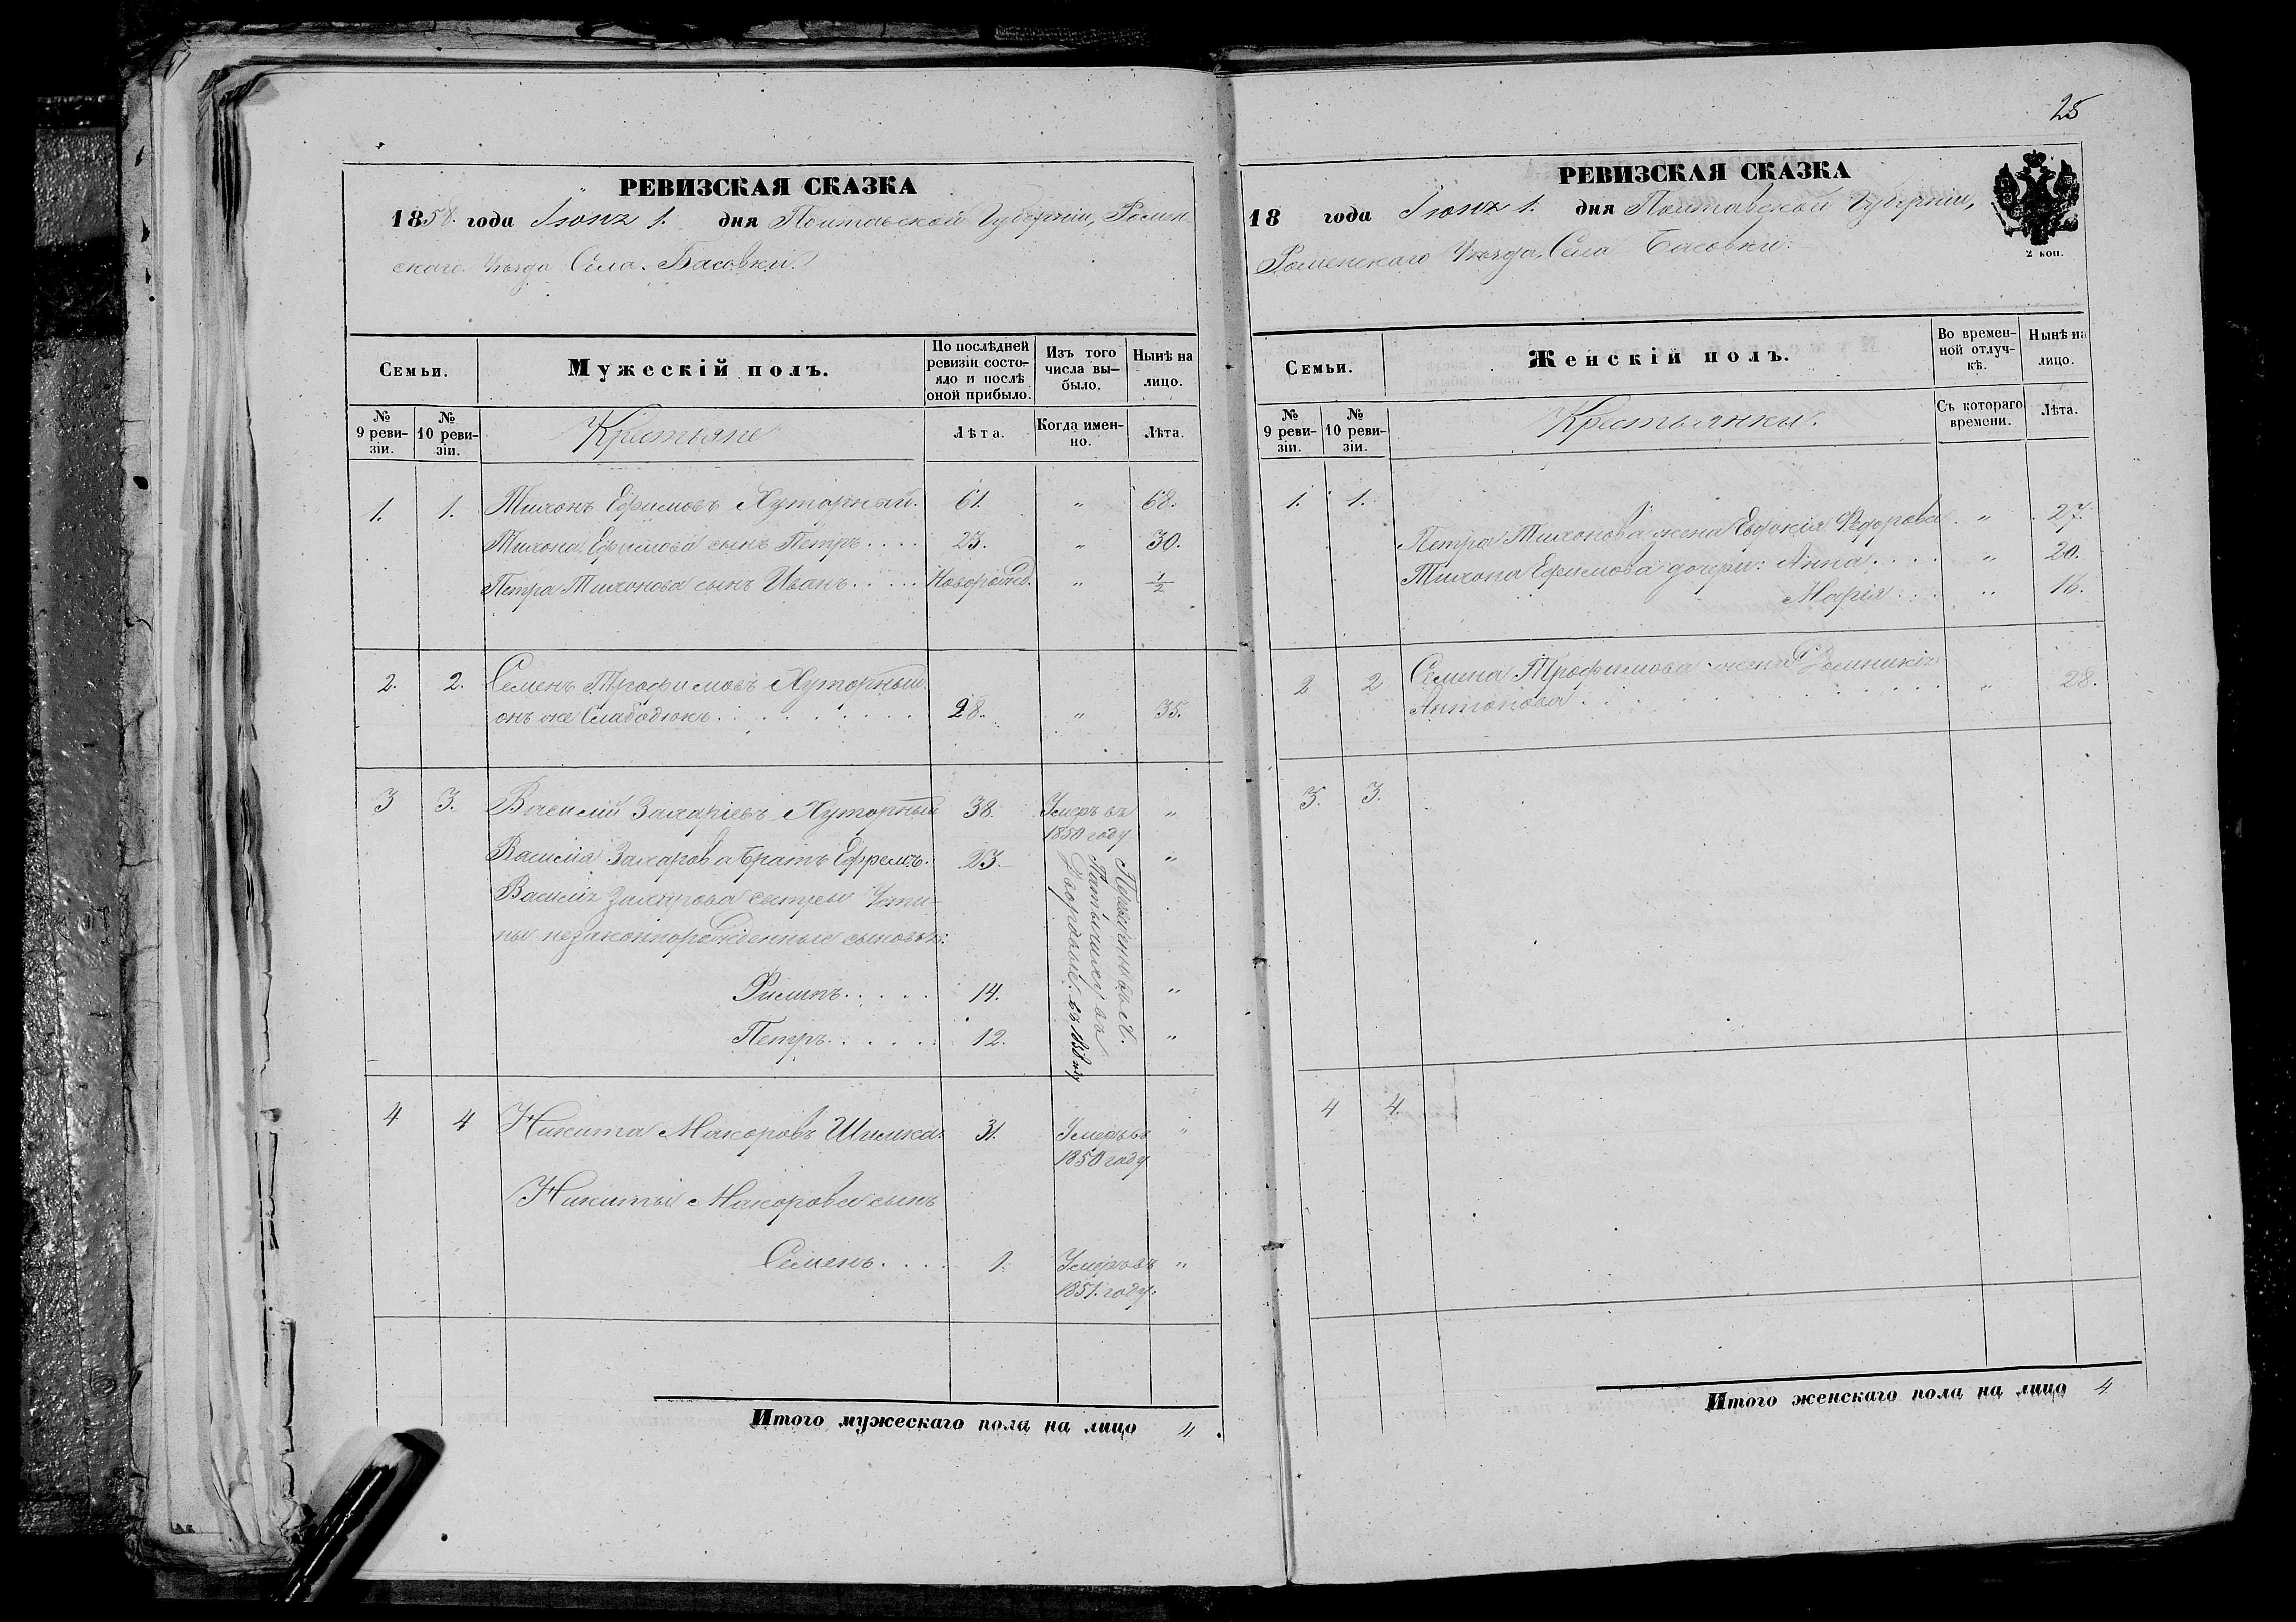 РЕВИЗСКАЯ СКАЗКА
1858. года Іюня 1. дня Полтавской Губерніи, Ромен-
скаго Уезда Села Басовки.
Семьи.
Мужескій полъ.
По послѣдней ревизіи состо-яло и послѣ оной прибыло.
Изъ того числа вы-было.
Нынѣ на лицо.
№ 9 реви-зіи.
№ 10 реви-зіи.
Крестьяне
Лѣта.
Когда имен-но.
Лѣта.
1. 1. Тихонъ Ефимовъ Хуторный. 61. " 68.
Тихона Ефимова сынъ Петръ.... 23. " 30.
Петра Тихонова сынъ Иванъ..... Новорожд. " 1/2
2. 2. Семенъ Трофимовъ Хуторный
онъ же Слабодюкъ.......... 28. " 35.
3 3. Василій Захаріевъ Хуторный 38. Умеръ въ "
1850 году
Василія Захарова братъ Ефремъ. 23. "
Василія Захарова сестры Усти-
ны незаконнорожденные сыновья:
Филипъ..... 14. "
Петръ...... 12. "
въ
Дворовые. въ
4 4 Никита Макаровъ Шишка. 31. Умеръ въ "
1850 году
Никиты Макарова сынъ
Семенъ.... 1. Умеръ въ "
1851. году.
Итого мужескаго пола на лицо 4
25
РЕВИЗСКАЯ СКАЗКА
18 года Іюня 1. дня Полтавской Губерніи,
Роменскаго Уезда, Села Басовки.
2 коп.
Семьи.
Женскій полъ.
Во времен-ной отлуч-кѣ.
Нынѣ на лицо.
№ 9 реви-зіи.
№ 10 реви-зіи.
Крестьянки.
Съ котораго времени.
Лѣта.
1. 1.
Петра Тихонова жена Евдокія Федорова. " 27.
Тихона Ефимова дочери: Анна.... " 20.
Марія... " 16.
2 2 Семена Трофимова жена Домникія
Антонова........... " 28.
3. 3.
4 4.
Итого женскаго пола на лицо 4